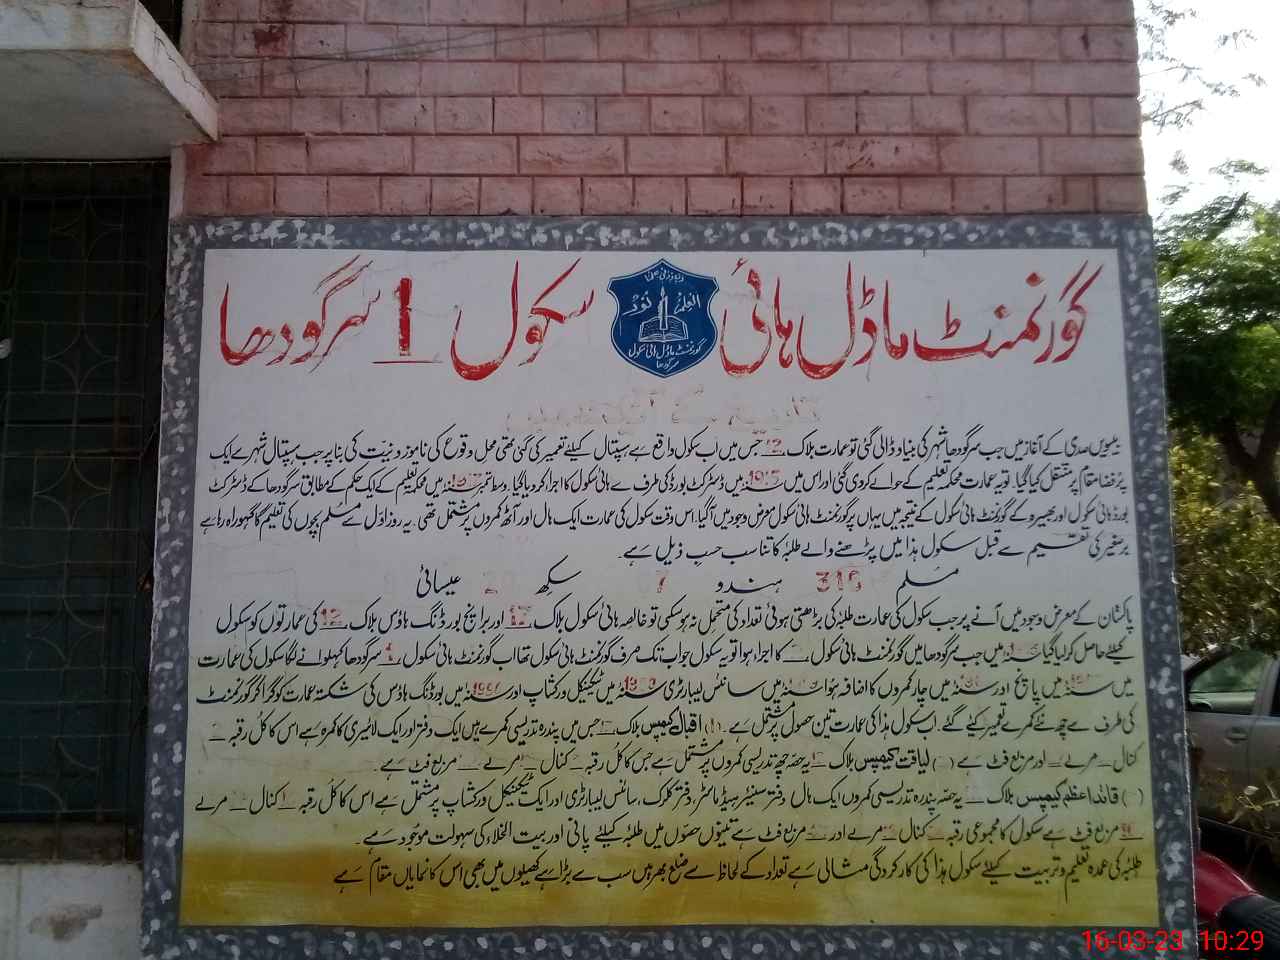 گورنمنٹ ماڈل ہائی سکول 1 سرگودھا
العلم نور
گورنمنٹ ماڈل ہائی سکول
سرگودھا
بیسویں صدی کے آغاز میں جب سرگودھا شہر کی بنیاد ڈالی گئی تو عمارت بلاک 12 جس میں اب سکول واقع ہے ہسپتال کیلئے تعمیر کی گئی تھی محل وقوع کی ناموزونیت کی بنا پر جب ہسپتال شہر سے ایک
پُر فضا مقام پر منتقل کیا گیا۔ تو یہ عمارت محکمہ تعلیم کے حوالے کر دی گئی اور اس میں سنہ میں ڈسٹرکٹ بورڈ کی طرف سے ہائی سکول کا اجرا کر دیا گیا۔ وسط ستمبر سنہ میں محکمہ تعلیم کے ایک حکم کے مطابق سرگودھا کے ڈسٹرکٹ
بورڈ ہائی سکول اور بھیرہ کے گورنمنٹ ہائی سکول کے نتیجہ میں یہاں پر گورنمنٹ ہائی سکول معرض وجود میں آگیا۔ اس وقت سکول کی عمارت ایک ہال اور آٹھ کمروں پر مشتمل تھی۔ یہ روز اول سے مسلم بچوں کی تعلیم کا گہوارہ رہا ہے
برصغیر کی تقسیم سے قبل سکول ہذا میں پڑھنے والے طلبہ کا تناسب حسب ذیل ہے۔
مسلم 310 ہندو 7 سکھ عیسائی
پاکستان کے معرض وجود میں آنے پر جب سکول کی عمارت طلبہ کی بڑھتی ہوئی تعداد کی متحمل نہ ہو سکی تو خالصہ ہائی سکول بلاک 17 اور برانچ بورڈنگ ہاؤس بلاک 12 کی عمارتوں کو سکول
کیلئے حاصل کر لیا گیا سنہ میں جب سرگودھا میں گورنمنٹ ہائی سکول کا اجرا ہوا تو یہ سکول جو اب تک صرف گورنمنٹ ہائی سکول تھا اب گورنمنٹ ہائی سکول 1 سرگودھا کہلوانے لگا سکول کی عمارت
میں سنہ میں پانچ اور سنہ میں چار کمروں کا اضافہ ہوا سنہ میں سائنس لیبارٹری سنہ میں ٹیکنیکل ورکشاپ اور سنہ میں بورڈنگ ہاؤس کی شکستہ عمارت کو گرا کر گورنمنٹ
کی طرف سے چھ نئے کمرے تعمیر کیئے گئے۔ اب سکول ہذا کی عمارت تین حصول پر مشتمل ہے۔ اقبال کیمپس بلاک جس میں پندرہ تدریسی کمرے ہیں ایک دفتر اور ایک لائبریری کا کمرہ ہے اس کا کل رقبہ
کنال مرلے اور مربع فٹ ہے لیاقت کیمپس بلاک یہ حصہ چھ تدریسی کمروں پر مشتمل ہے جس کا کل رقبہ کنال مرلے مربع فٹ ہے۔
قائداعظم کیمپس بلاک یہ حصہ پندرہ تدریسی کمروں ایک ہال دفتر سینئر ہیڈ ماسٹر، دفتر کلرک، سائنس لیبارٹری اور ایک ٹیکنیکل ورکشاپ پر مشتمل ہے اس کا کل رقبہ کنال مرلے
مربع فٹ ہے سکول کا مجموعی رقبہ کنال مرلے اور مربع فٹ ہے تینوں حصوں میں طلبہ کیلئے پانی اور بیت الخلاء کی سہولت موجود ہے۔
طلبہ کی عمدہ تعلیم و تربیت کیلئے سکول ہذا کی کارکردگی مثالی ہے تعداد کے لحاظ سے ضلع بھر میں سب سے بڑا ہے کھیلوں میں بھی اس کا نمایاں مقام ہے
16-03-23 10:29